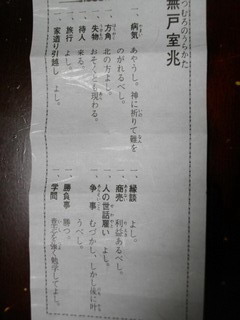 つむろのうらかた
無戸室兆
一、病気 あやうし。神に祈りて難を
のがれるべし。
一、方角 北の方よし。
一、失物 おそくとも現わる。
一、待人 来る。
一、旅行 よし。
一、家造り引越し よし。
一、縁談 よし。
一、商売 利益あるべし。
一、人の世話雇い よし。
一、争事 むづかし、しかし後に叶
うべし。
一、勝負事 勝つ。
一、学問 意志を強く勉学してよし。